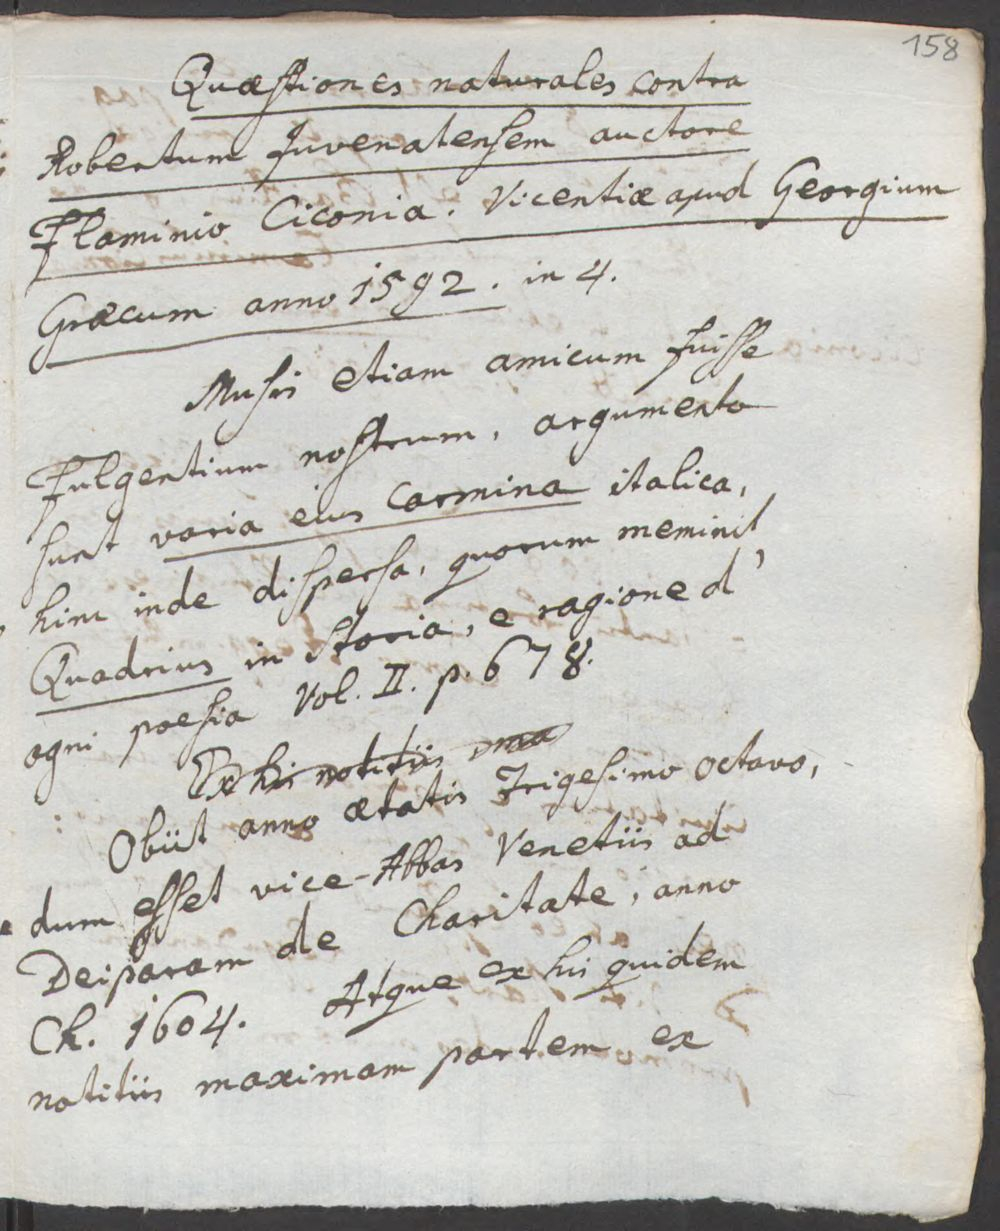 158
Quæstiones naturales contra
Robertum Juvenatensem auctore
Flaminio Ciconia. Vicentiæ apud Georgium
Græcum anno 1592. in 4.
Musis etiam amicum fuisse
Fulgentium nostrum, argumento
sunt varia eius Carmina italica,
hinc inde dispersa, quorum meminit
Quadrius in Storia, e ragione d'
ogni poesia Vol. II. p. 678.
Ex his notitiis
Obiit anno ætatis Trigesimo octavo,
dum esset vice-Abbas Venetiis ad
Deiparam de Charitate, anno
Ch. 1604. Atque ex his quidem
notitiis maximam partem ex